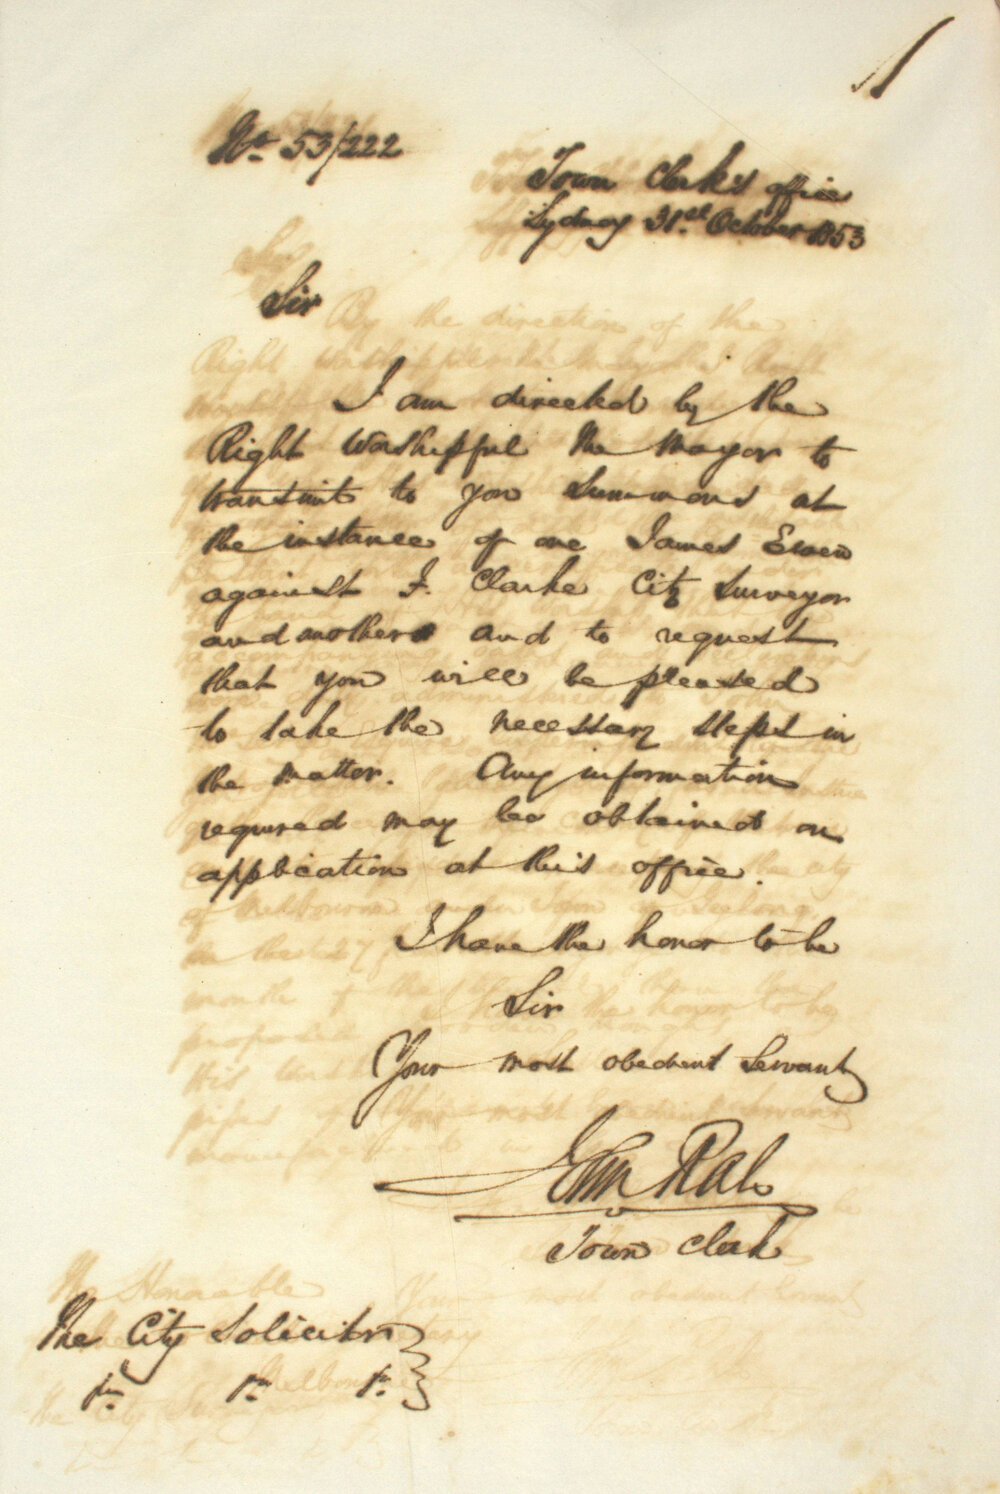 1
No. 53/222
Town Clerk's office
Sydney 31st October 1853
Sir
I am directed by the
Right Worshipful the Mayor to
transmit to you Summons at
the instance of one James Ewen
against F. Clarke City Surveyor
and another and to request
that you will be pleased
to take the necessary steps in
the matter. Any information
required may be obtained on
application at this office.
I have the honor to be
Sir
Your most obedient Servant
John Rae
Town Clerk
The City Solicitor